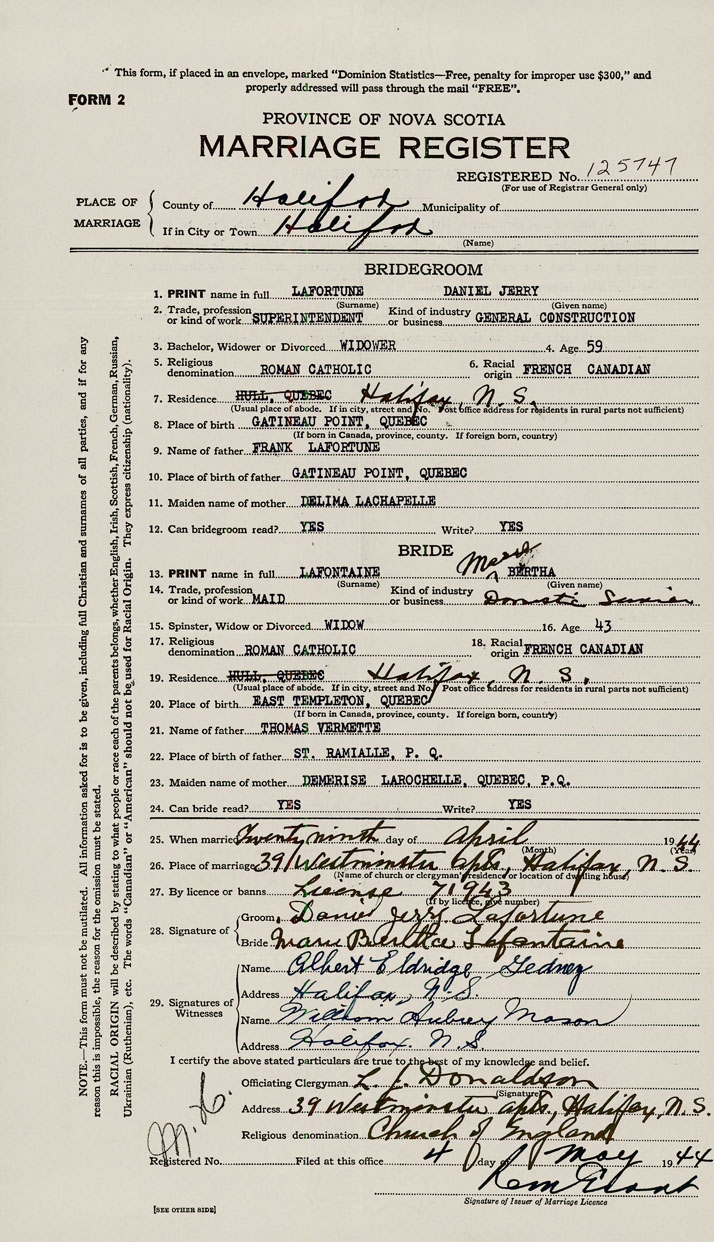 This form, if placed in an envelope, marked "Dominion Statistics—Free, penalty for improper use $300," and
properly addressed will pass through the mail "FREE".
FORM 2
PROVINCE OF NOVA SCOTIA
MARRIAGE REGISTER
REGISTERED No. 125747
(For use of Registrar General only)
PLACE OF MARRIAGE
County of Halifax Municipality of
If in City or Town Halifax
(Name)
BRIDEGROOM
1. PRINT name in full LAFORTUNE DANIEL JERRY
(Surname) (Given name)
2. Trade, profession or kind of work SUPERINTENDENT Kind of industry or business GENERAL CONSTRUCTION
3. Bachelor, Widower or Divorced WIDOWER 4. Age 59
5. Religious denomination ROMAN CATHOLIC 6. Racial origin FRENCH CANADIAN
7. Residence HULL, QUEBEC Halifax, N. S.
(Usual place of abode. If in city, street and No. Post office address for residents in rural parts not sufficient)
8. Place of birth GATINEAU POINT, QUEBEC
(If born in Canada, province, county. If foreign born, country)
9. Name of father FRANK LAFORTUNE
10. Place of birth of father GATINEAU POINT, QUEBEC
11. Maiden name of mother DELIMA LACHAPELLE
12. Can bridegroom read? YES Write? YES
BRIDE
13. PRINT name in full LAFONTAINE Marie BERTHA
(Surname) (Given name)
14. Trade, profession or kind of work MAID Kind of industry or business Domestic Service
15. Spinster, Widow or Divorced WIDOW 16. Age 43
17. Religious denomination ROMAN CATHOLIC 18. Racial origin FRENCH CANADIAN
19. Residence HULL, QUEBEC Halifax, N. S.
(Usual place of abode. If in city, street and No. Post office address for residents in rural parts not sufficient)
20. Place of birth EAST TEMPLETON, QUEBEC
(If born in Canada, province, county. If foreign born, country)
21. Name of father THOMAS VERMETTE
22. Place of birth of father ST. RAMIALLE, P. Q.
23. Maiden name of mother DEMERISE LAROCHELLE, QUEBEC, P.Q.
24. Can bride read? YES Write? YES
25. When married Twenty ninth day of April 1944
(Month) (Year)
26. Place of marriage 39 Westminster Apts, Halifax, N. S.
(Name of church or clergyman's residence or location of dwelling house)
27. By licence or banns License 71943
(If by licence, give number)
28. Signature of
Groom Daniel Jerry Lafortune
Bride Marie Berthe Lafontaine
29. Signatures of Witnesses
Name Albert Eldridge Gedney
Address Halifax, N.S.
Name William Aubrey Mason
Address Halifax. N.S.
I certify the above stated particulars are true to the best of my knowledge and belief.
Officiating Clergyman L. J. Donaldson
(Signature)
Address 39 Westminster Apts., Halifax, N.S.
Religious denomination Church of England
Registered No. Filed at this office 4 day of May 1944
Signature of Issuer of Marriage Licence
[SEE OTHER SIDE]
NOTE.—This form must not be mutilated. All information asked for is to be given, including full Christian and surnames of all parties, and if for any
reason this is impossible, the reason for the omission must be stated.
RACIAL ORIGIN will be described by stating to what people or race each of the parents belongs, whether English, Irish, Scottish, French, German, Russian,
Ukrainian (Ruthenian), etc. The words "Canadian" or "American" should not be used for Racial Origin. They express citizenship (nationality).